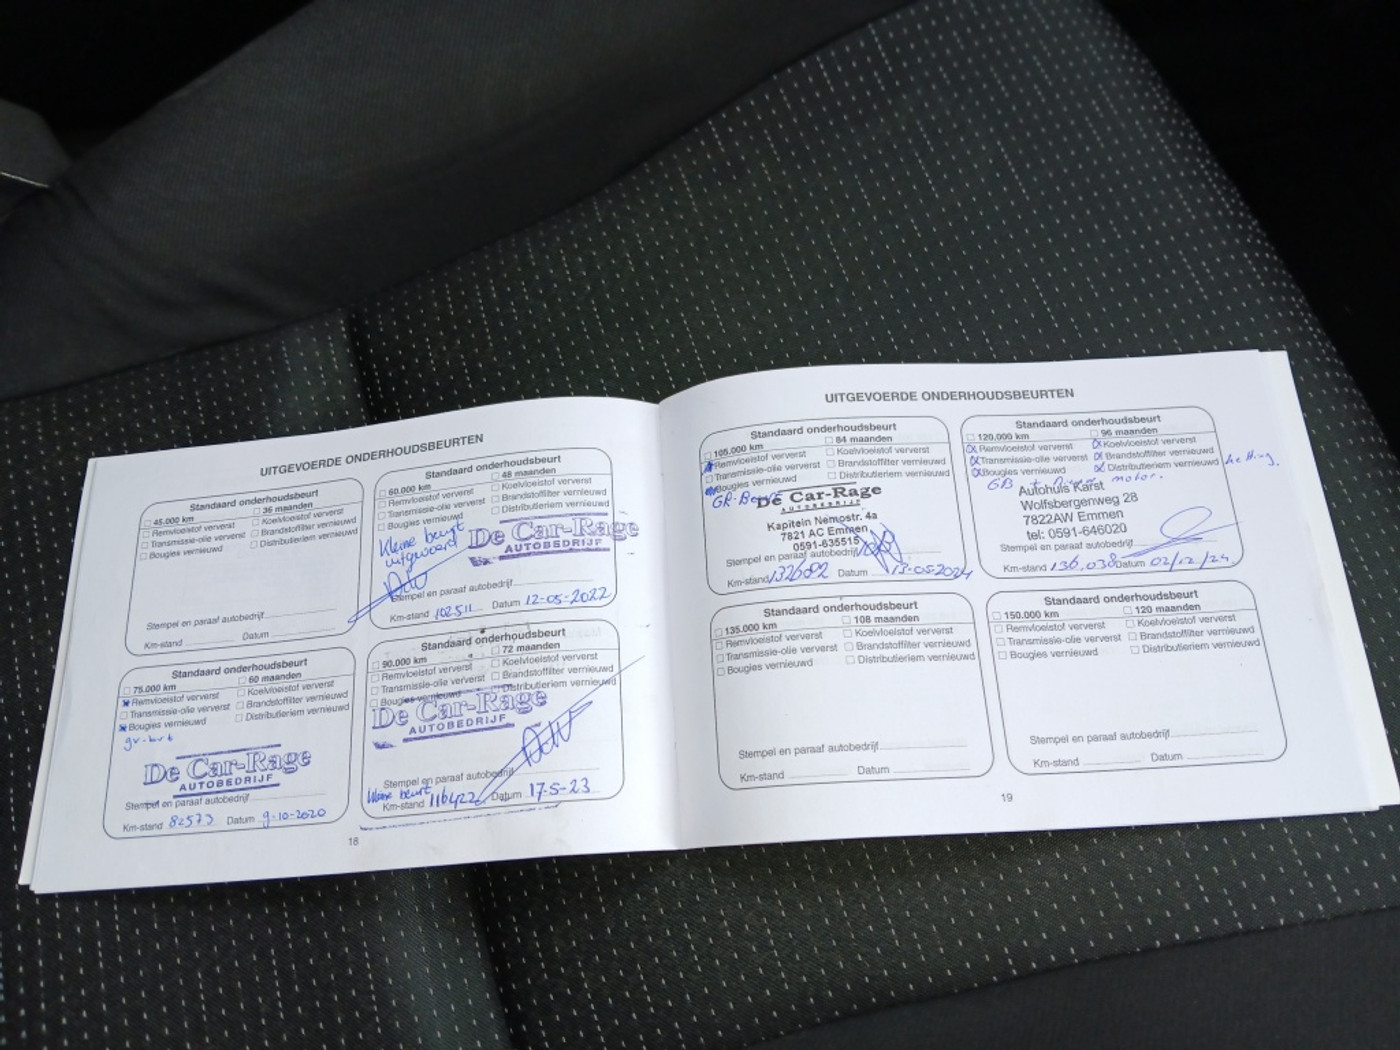 UITGEVOERDE ONDERHOUDSBEURTEN
Standaard onderhoudsbeurt
45.000 km 36 maanden
Remvloeistof ververst Koelvloeistof ververst
Transmissie-olie ververst Brandstoffilter vernieuwd
Bougies vernieuwd Distributieriem vernieuwd
Stempel en paraaf autobedrijf
Km-stand Datum
Standaard onderhoudsbeurt
60.000 km 48 maanden
Remvloeistof ververst Koelvloeistof ververst
Transmissie-olie ververst Brandstoffilter vernieuwd
Bougies vernieuwd Distributieriem vernieuwd
Kleine beurt
uitgevoerd
De Car-Rage
AUTOBEDRIJF
Stempel en paraaf autobedrijf
Km-stand 102511 Datum 12-05-2022
Standaard onderhoudsbeurt
75.000 km 60 maanden
Remvloeistof ververst Koelvloeistof ververst
Transmissie-olie ververst Brandstoffilter vernieuwd
Bougies vernieuwd Distributieriem vernieuwd
De Car-Rage
AUTOBEDRIJF
Stempel en paraaf autobedrijf
Km-stand 82573 Datum 9-10-2020
Standaard onderhoudsbeurt
90.000 km 72 maanden
Remvloeistof ververst Koelvloeistof ververst
Transmissie-olie ververst Brandstoffilter vernieuwd
Bougies vernieuwd Distributieriem vernieuwd
De Car-Rage
AUTOBEDRIJF
Stempel en paraaf autobedrijf
kleine beurt
Km-stand 116422 Datum 17-5-23
18
UITGEVOERDE ONDERHOUDSBEURTEN
Standaard onderhoudsbeurt
105.000 km 84 maanden
Remvloeistof ververst Koelvloeistof ververst
Transmissie-olie ververst Brandstoffilter vernieuwd
Bougies vernieuwd Distributieriem vernieuwd
GR-Beurt
De Car-Rage
AUTOBEDRIJF
Kapitein Nemostr. 4a
7821 AC Emmen
0591-635515
Stempel en paraaf autobedrijf
Km-stand 132682 Datum 13-05-2024
Standaard onderhoudsbeurt
120.000 km 96 maanden
Remvloeistof ververst Koelvloeistof ververst
Transmissie-olie ververst Brandstoffilter vernieuwd
Bougies vernieuwd Distributieriem vernieuwd ketting.
GB + Nieuwe motor.
Autohuis Karst
Wolfsbergenweg 28
7822AW Emmen
tel: 0591-646020
Stempel en paraaf autobedrijf
Km-stand 136.038 Datum 02/12/24.
Standaard onderhoudsbeurt
135.000 km 108 maanden
Remvloeistof ververst Koelvloeistof ververst
Transmissie-olie ververst Brandstoffilter vernieuwd
Bougies vernieuwd Distributieriem vernieuwd
Stempel en paraaf autobedrijf
Km-stand Datum
Standaard onderhoudsbeurt
150.000 km 120 maanden
Remvloeistof ververst Koelvloeistof ververst
Transmissie-olie ververst Brandstoffilter vernieuwd
Bougies vernieuwd Distributieriem vernieuwd
Stempel en paraaf autobedrijf
Km-stand Datum
19